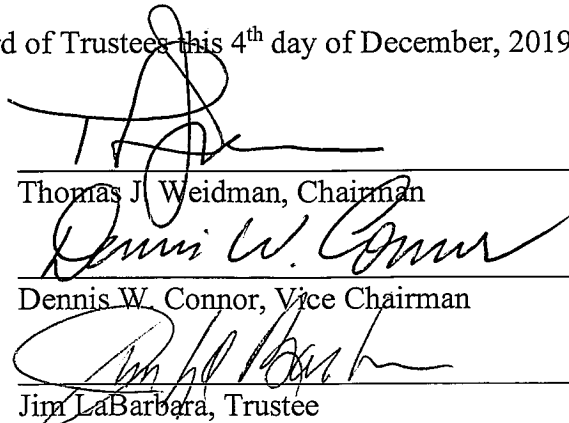 rd of Trustees this 4th day of December, 2019
Thomas J. Weidman, Chairman
Dennis W. Connor
Dennis W. Connor, Vice Chairman
Jim LaBarbara, Trustee